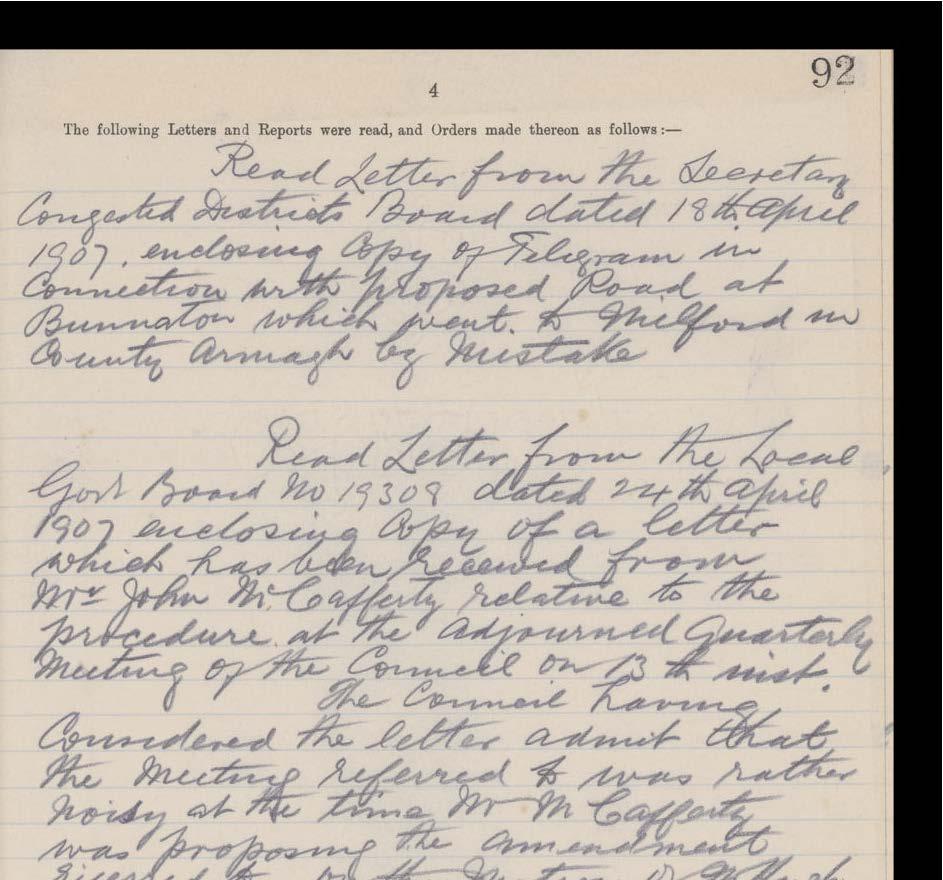 92
4
The following Letters and Reports were read, and Orders made thereon as follows :—
Read Letter from the Secretary
Congested Districts Board dated 18th April
1907. enclosing Copy of Telegram in
Connection with proposed Road at
Bunnaton which went. to Milford in
County Armagh by Mistake
Read Letter from the Local
Govt Board No 19308 dated 24th April
1907 enclosing Copy of a letter
which has been received from
Mr John McCafferty relative to the
procedure. at the Adjourned Quarterly
Meeting of the Council on 13th inst.
The Council having
Considered the letter admit that
the Meeting referred to was rather
Noisy at the time Mr McCafferty
was proposing the amendment